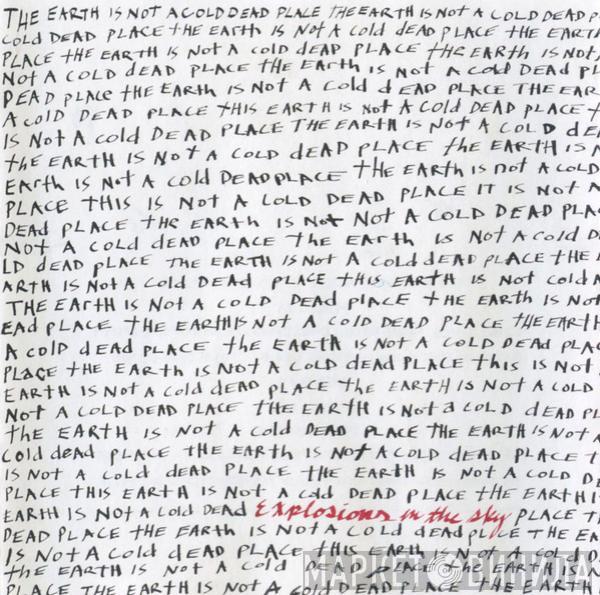 THE EARTH IS NOT A COLD DEAD PLACE THE EARTH IS NOT A COLD DEAD P
COLD DEAD PLACE THE EARTH IS NOT A COLD DEAD PLACE THE EARTH
PLACE THE EARTH IS NOT A COLD DEAD PLACE THE EARTH IS NOT
NOT A COLD DEAD PLACE THE EARTH IS NOT A COLD DEAD PL
DEAD PLACE THE EARTH IS NOT A COLD DEAD PLACE THE EAR
A COLD DEAD PLACE THIS EARTH IS NOT A COLD DEAD PLACE T
IS NOT A COLD DEAD PLACE THE EARTH IS NOT A COLD DE
THE EARTH IS NOT A COLD DEAD PLACE THE EARTH IS N
EARTH IS NOT A COLD DEAD PLACE THE EARTH IS NOT A COLD
PLACE THIS IS NOT A COLD DEAD PLACE IT IS NOT A
DEAD PLACE THE EARTH IS NOT NOT A COLD DEAD PLA
NOT A COLD DEAD PLACE THE EARTH IS NOT A COLD D
LD DEAD PLACE THE EARTH IS NOT A COLD DEAD PLACE THE
ARTH IS NOT A COLD DEAD PLACE THIS EARTH IS NOT COLD A
THE EARTH IS NOT A COLD DEAD PLACE THE EARTH IS NOT
EAD PLACE THE EARTH IS NOT A COLD DEAD PLACE THE EARTH
A COLD DEAD PLACE THE EARTH IS NOT A COLD DEAD PLA
PLACE THE EARTH IS NOT A COLD DEAD PLACE THIS IS NOT
EARTH IS NOT A COLD DEAD PLACE THE EARTH IS NOT A COLD
NOT A COLD DEAD PLACE THE EARTH IS NOT A COLD DEAD PL
THE EARTH IS NOT A COLD DEAD PLACE THE EARTH IS NOT A
COLD DEAD PLACE THE EARTH IS NOT A COLD DEAD PLACE T
IS NOT A COLD DEAD PLACE THE EARTH IS NOT A COLD DE
PLACE THIS EARTH IS NOT A COLD DEAD PLACE THE EARTH I
EARTH IS NOT A COLD DEAD Explosions in the sky PLACE T
DEAD PLACE THE EARTH IS NOT A COLD DEAD PLACE THE EA
IS NOT A COLD DEAD PLACE THIS EARTH IS NOT A COLD
THE EARTH IS NOT A COLD DEAD PLACE THE EARTH IS
PLACE THE EARTH IS NOT A COLD DEAD PLACE THE EARTH
МАРКЕТ ВИНИЛА